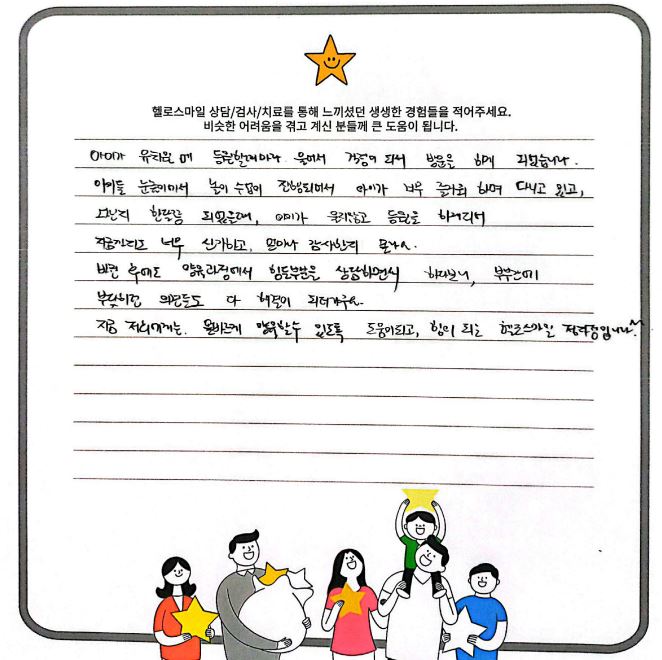 헬로스마일 상담/검사/치료를 통해 느끼셨던 생생한 경험들을 적어주세요.
비슷한 어려움을 겪고 계신 분들께 큰 도움이 됩니다.
아이가 유치원에 등원할때마다 울어서 걱정이 되서 방문을 하게 되었습니다.
아이들 눈높이에서 놀이 수업이 진행되어서 아이가 너무 즐거워 하며 다니고 있고,
다닌지 한달쯤 되었을때, 아이가 울지않고 등원을 하더라구요
지금까지도 너무 신기하고, 얼마나 감사한지 몰라요.
방문 후에도 양육과정에서 힘든부분을 상담하면서 하다보니, 부부간에
부딪히던 의견들도 다 해결이 되더라구요.
지금 저희에게는 올바르게 양육할수 있도록 도움이되고, 힘이 되는 헬로스마일 정라점입니다^^